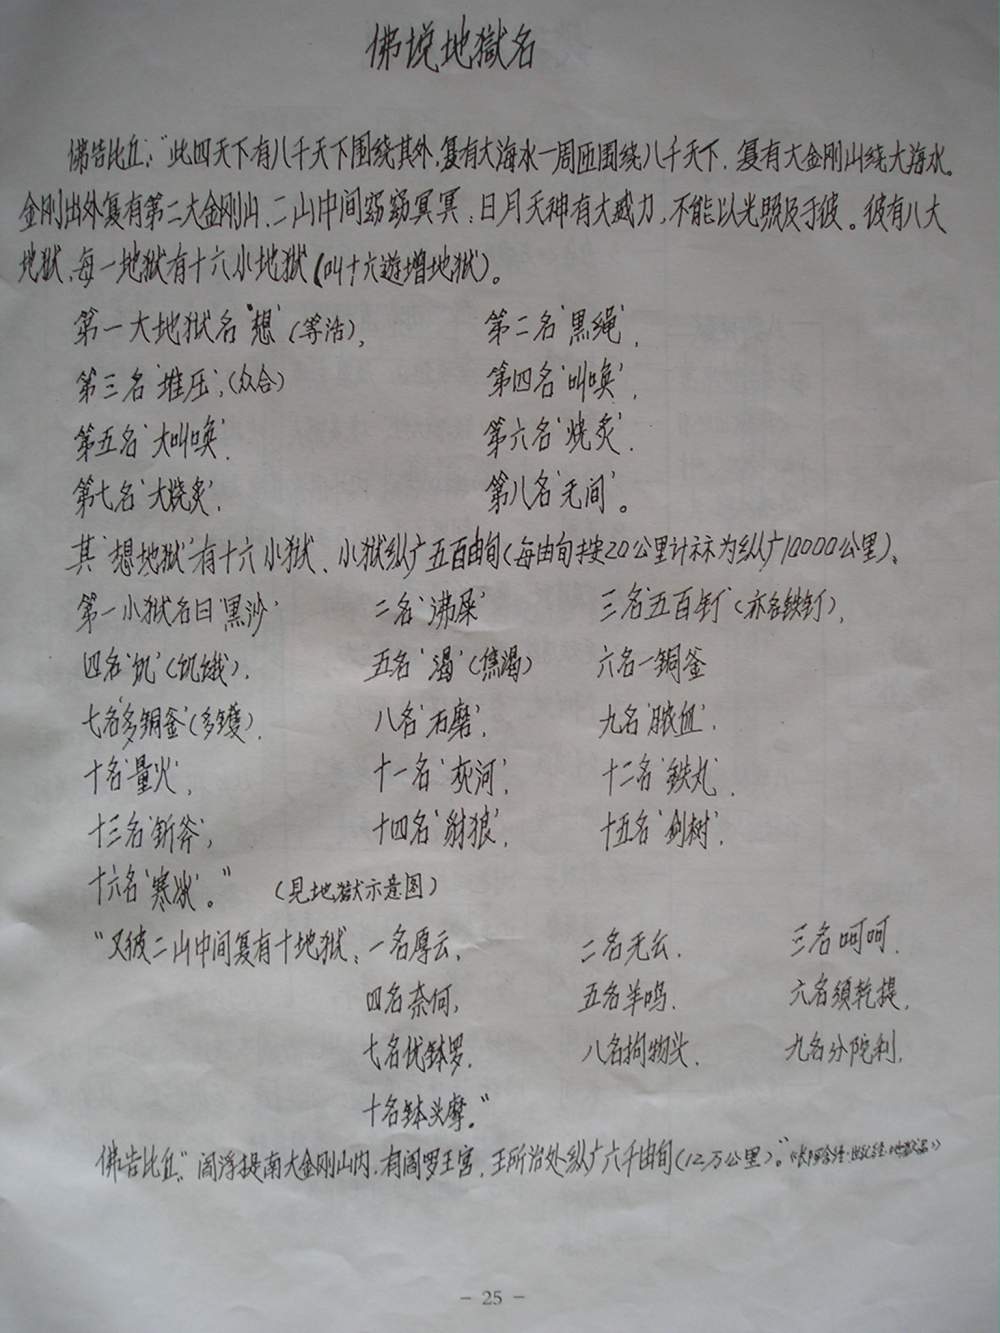 佛说地獄名
佛告比丘：“此四天下有八千天下围绕其外，复有大海水一周匝围绕八千天下．复有大金刚山绕大海水。
金刚山外复有第二大金刚山．二山中间窈窈冥冥，日月天神有大威力，不能以光照及于彼。彼有八大
地獄，每一地獄有十六小地獄（叫十六遊增地獄）。
第一大地獄名‘想’（等活）， 第二名‘黑绳’，
第三名‘堆压’，（众合） 第四名‘叫唤’，
第五名‘大叫唤’． 第六名‘烧炙’．
第七名‘大烧炙’， 第八名‘无间’。
其‘想地獄’有十六小獄．小獄纵广五百由旬（每由旬按20公里计称为纵广10000公里）、
第一小獄名曰‘黑沙’ 二名‘沸屎’ 三名‘五百钉’（亦名铁钉），
四名‘饥’（饥饿）． 五名‘渴’（焦渴） 六名一铜釜
七名‘多铜釜’（多镬）． 八名‘石磨’， 九名‘脓血’．
十名‘量火’， 十一名‘灰河’， 十二名‘铁丸’．
十三名‘斩斧’， 十四名‘豺狼’， 十五名‘剑树’．
十六名‘寒冰’。” （見地獄示意图）
“又彼二山中间复有十地獄：一名厚云， 二名无云． 三名呵呵．
四名奈何， 五名羊鸣． 六名须乾提．
七名优钵罗． 八名拘物头． 九名分陀利．
十名钵头摩。”
佛告比丘：“阎浮提南大金刚山内．有阎罗王宫．王所治处纵广六千由旬（12万公里）。”《长阿含经·世记经·地獄品》
- 25 -